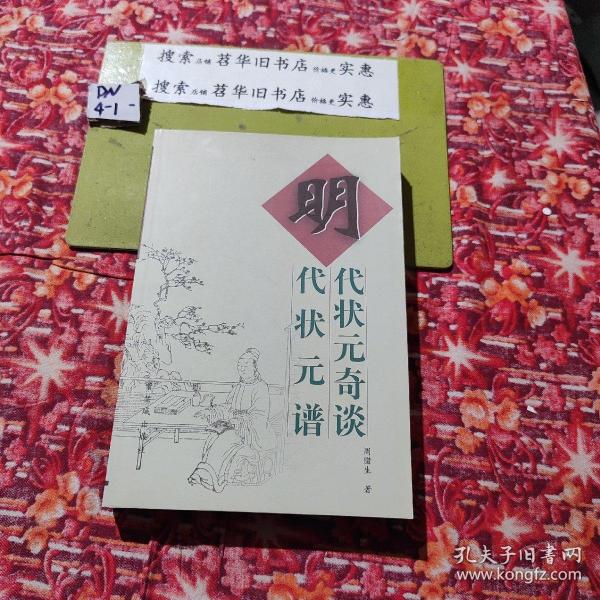 搜索店铺 苕华旧书店 价格更 实惠
搜索店铺 苕华旧书店 价格更 实惠
DW
4-1-
明
代状元奇谈
代状元谱
周腊生 著
孔夫子旧书网
www.kongfz.com